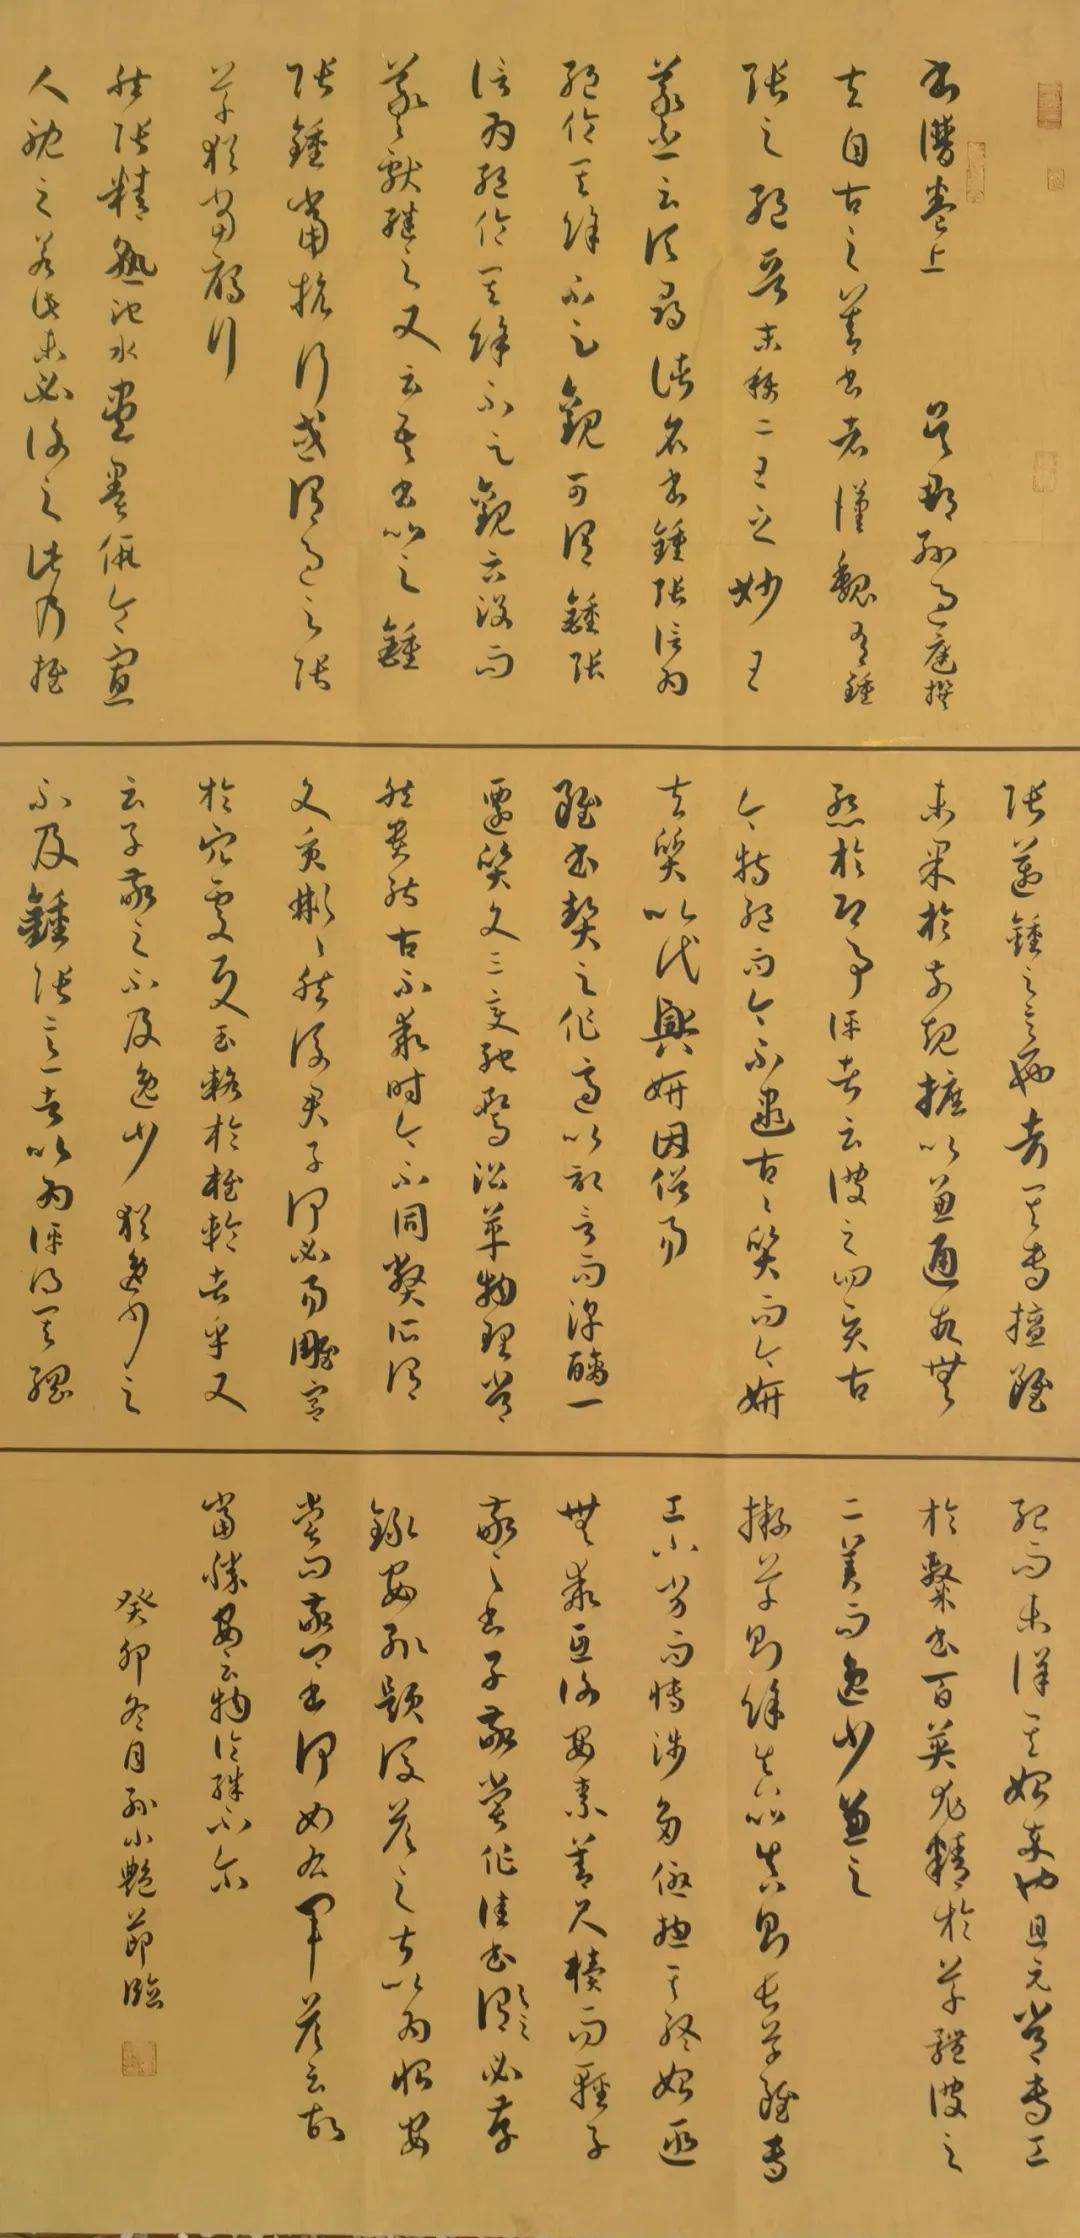 書譜卷上 吳郡孫過庭撰
夫自古之善書者漢魏有鍾
張之絕晉末稱二王之妙王
羲之云頃尋諸名書鍾張信為
絕倫其餘不足觀可謂鍾張
信為絕倫其餘不足觀云沒而
羲獻繼之又云吾書比之鍾
張鍾當抗行或謂過之張
草猶當雁行
然張精熟池水盡墨假令寡
人耽之若此未必謝之此乃推
張邁鍾之意也考其專擅雖
未果於前規摭以兼通故無
慙於即事評者云彼之四賢古
今特絕而今不逮古〻質而今妍
夫質以代興妍因俗易
雖書契之作適以記言而淳醨一
遷質文三變馳騖沿革物理常
然貴能古不乖時今不同弊所謂
文質彬〻然後君子何必易雕宮
於穴處反玉輅於椎輪者乎又
云子敬之不及逸少猶逸少之
不及鍾張意者以為評得其綱
紀而未詳其始卒也且元常專工
於隸書百英尤精於草體彼之
二美而逸少兼之
擬草則餘真比真則長草雖專
工小劣而博涉多優總其終始匪
無乖互謝安素善尺牘而輕子
敬之書子敬嘗作佳書與之謂必存
錄安輒題後答之甚以為恨安
嘗問敬卿書何如右軍答云故
當勝安云物論殊不爾
癸卯冬月孫小艷節臨